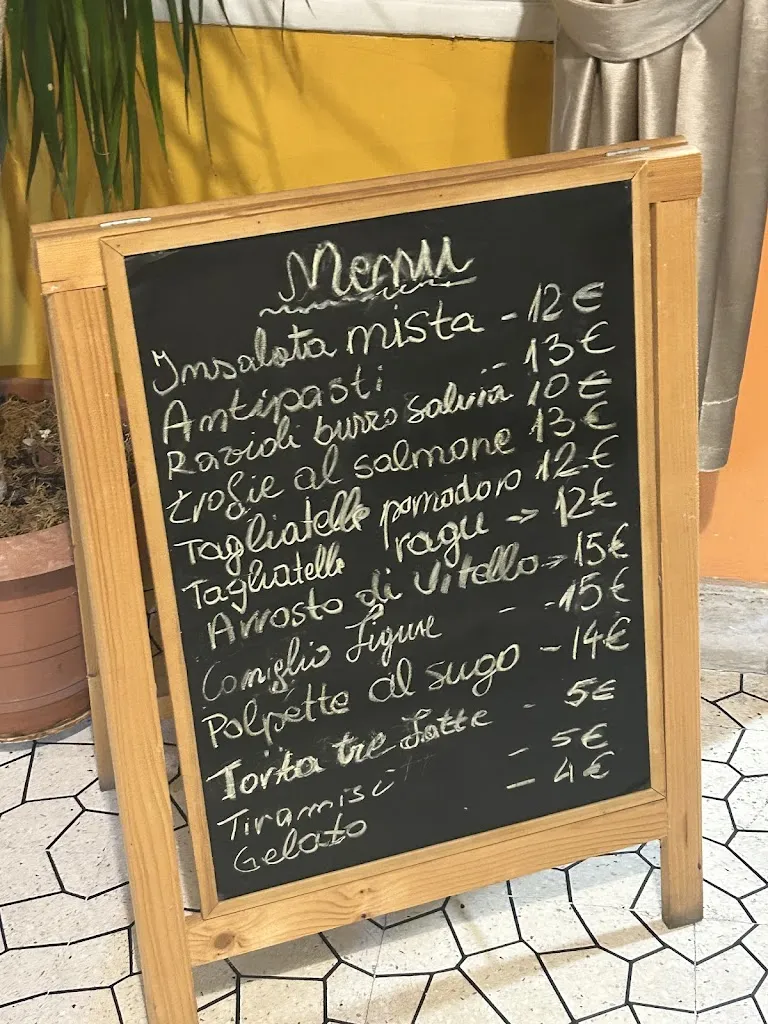 Menu
Insalata mista - 12 €
Antipasti -- 13 €
Ravioli burro salvia 10 €
trofie al salmone 13 €
Tagliatelle pomodoro 12 €
Tagliatelle ragu -> 12 €
Arrosto di Vitello -> 15 €
Coniglio Ligure - - 15 €
Polpette al sugo - 14 €
Torta tre Latte - 5 €
Tiramisù - 5 €
Gelato - 4 €